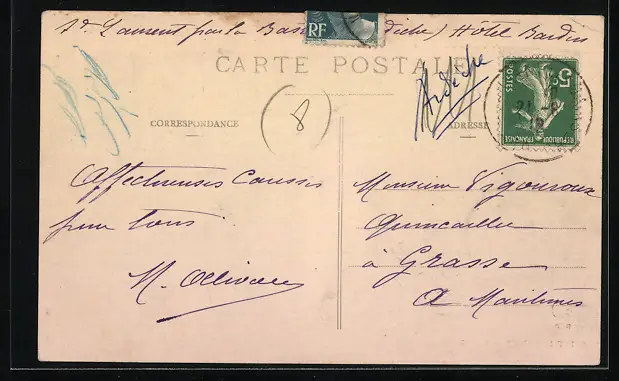 St Laurent par la Bas Ardèche) Hôtel Bardin
RF
CARTE POSTALE
Ardèche
8
CORRESPONDANCE
ADRESSE
5c
POSTES
REPUBLIQUE FRANÇAISE
Affectueuses Causses
pour tous
M. Ollivau
Monsieur Vigouroux
Quincaillier
à Grasse
A Maritimes